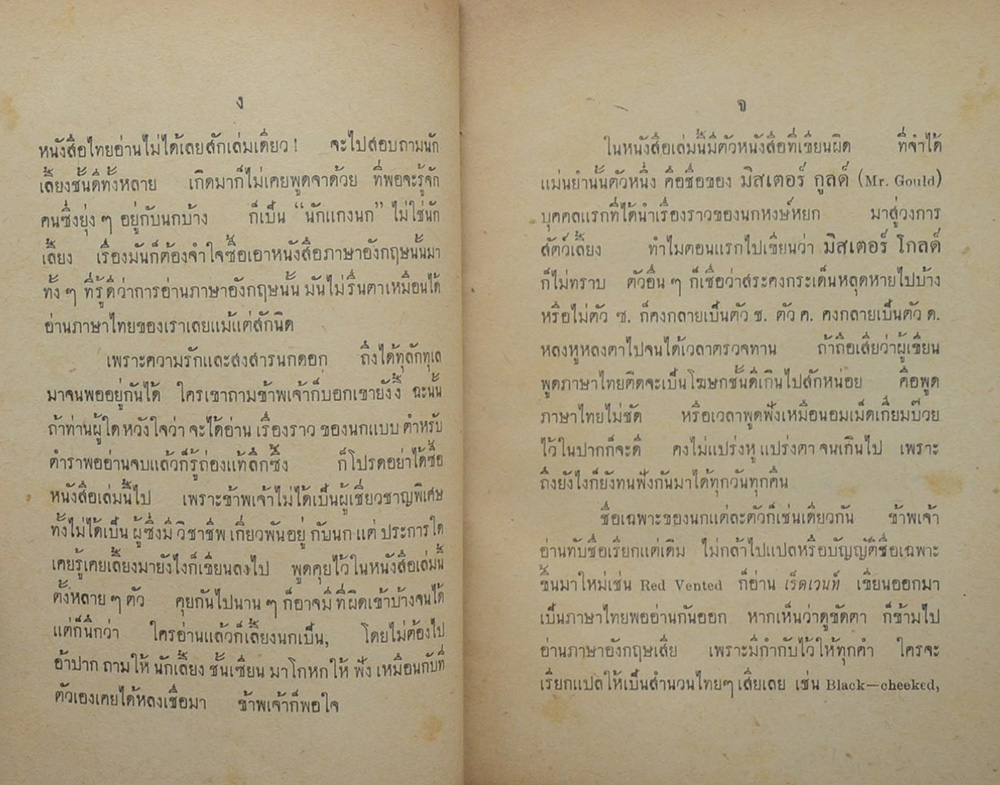 ง
หนังสือไทยอ่านไม่ได้เลยสักเล่มเดียว! จะไปสอบถามนัก
เลี้ยงชั้นดีทั้งหลาย เกิดมาก็ไม่เคยพูดจาด้วย ที่พอจะรู้จัก
คนซึ่งยุ่ง ๆ อยู่กับนกบ้าง ก็เป็น “นักแกงนก” ไม่ใช่นัก
เลี้ยง เรื่องมันก็ต้องจำใจซื้อเอาหนังสือภาษาอังกฤษนั้นมา
ทั้ง ๆ ที่รู้ดีว่าการอ่านภาษาอังกฤษนั้น มันไม่รื่นตาเหมือนได้
อ่านภาษาไทยของเราเลยแม้แต่สักนิด
เพราะความรักและสงสารนกดอก ถึงได้ทุลักทุเล
มาจนพออยู่กันได้ ใครเขาถามข้าพเจ้าก็บอกเขายังงี้ ฉะนั้น
ถ้าท่านผู้ใดหวังใจว่า จะได้อ่าน เรื่องราว ของนกแบบ ตำหรับ
ตำราพออ่านจบแล้วก็รู้ถ่องแท้ลึกซึ้ง ก็โปรดอย่าได้ซื้อ
หนังสือเล่มนี้ไป เพราะข้าพเจ้าไม่ได้เป็นผู้เชี่ยวชาญพิเศษ
ทั้งไม่ได้เป็น ผู้ซึ่งมี วิชาชีพ เกี่ยวพันอยู่ กับนก แต่ ประการใด
เคยรู้เคยเลี้ยงมายังไงก็เขียนลงไป พูดคุยไว้ในหนังสือเล่มนี้
ตั้งหลาย ๆ ตัว คุยกันไปนาน ๆ ก็อาจมี ที่ ผิดเข้าบ้างจนได้
แต่ก็นึกว่า ใครอ่านแล้วก็เลี้ยงนกเป็น, โดยไม่ต้องไป
อ้าปาก ถามให้ นักเลี้ยง ชั้นเซียน มาโกหกให้ ฟัง เหมือนกับที่
ตัวเองเคยได้หลงเชื่อมา ข้าพเจ้าก็พอใจ
จ
ในหนังสือเล่มนี้มีตัวหนังสือที่เขียนผิด ที่จำได้
แม่นยำนั้นตัวหนึ่ง คือชื่อของ มิสเตอร์ กูลด์ (Mr. Gould)
บุคคลแรกที่ได้นำเรื่องราวของนกหงษ์หยก มาสู่วงการ
สัตว์เลี้ยง ทำไมตอนแรกไปเขียนว่า มิสเตอร์ โกลด์
ก็ไม่ทราบ ตัวอื่น ๆ ก็เชื่อว่าสระคงกระเด็นหลุดหายไปบ้าง
หรือไม่ตัว ซ. ก็คงกลายเป็นตัว ช. ตัว ค. คงกลายเป็นตัว ด.
หลงหูหลงตาไปจนได้เวลาตรวจทาน ถ้าถือเสียว่าผู้เขียน
พูดภาษาไทยคิดจะเป็นโฆษกชั้นดีเกินไปสักหน่อย คือพูด
ภาษาไทยไม่ชัด หรือเวลาพูดฟังเหมือนอมเม็ดเกี้ยมบ๊วย
ไว้ในปากก็จะดี คงไม่แปร่งหู แปร่งตา จนเกินไป เพราะ
ถึงยังไงก็ยังทนฟังกันมาได้ทุกวันทุกคืน
ชื่อเฉพาะของนกแต่ละตัวก็เช่นเดียวกัน ข้าพเจ้า
อ่านทับชื่อเรียกแต่เดิม ไม่กล้าไปแปลหรือบัญญัติชื่อเฉพาะ
ขึ้นมาใหม่เช่น Red Vented ก็อ่าน เร็ดเวนท์ เขียนออกมา
เป็นภาษาไทยพออ่านกันออก หากเห็นว่าดูขัดตา ก็ข้ามไป
อ่านภาษาอังกฤษเสีย เพราะมีกำกับไว้ให้ทุกคำ ใครจะ
เรียกแปลให้เป็นสำนวนไทยๆ เสียเลย เช่น Black—cheeked,